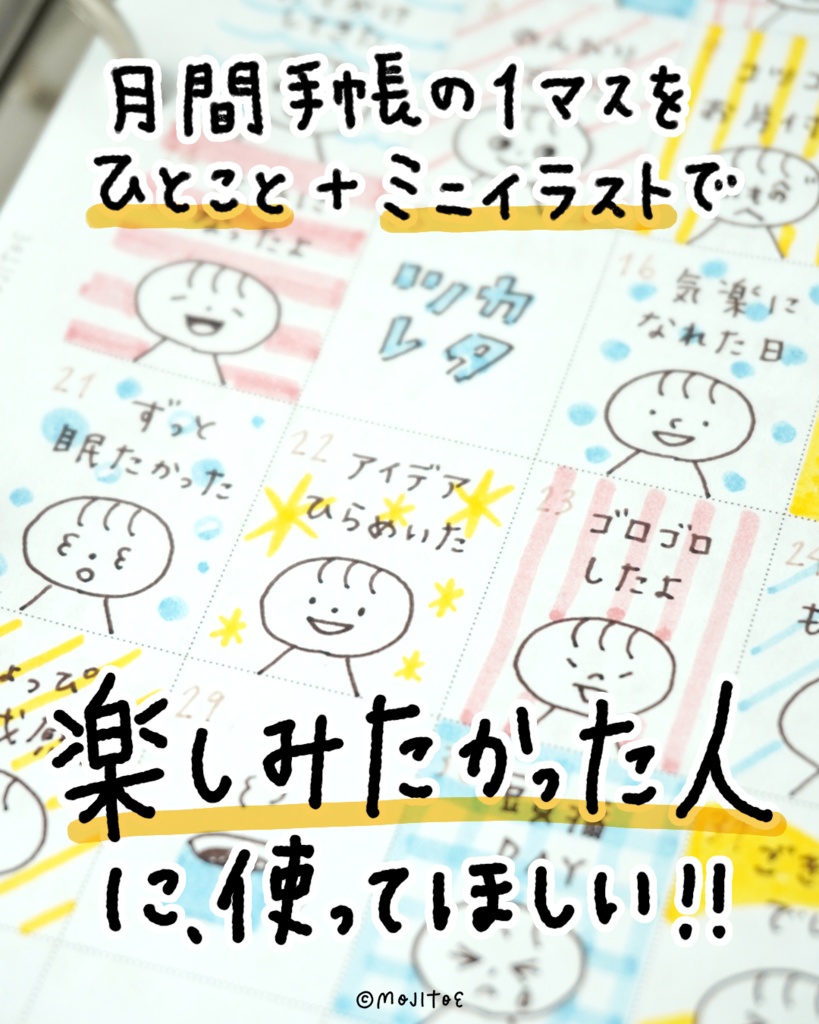 月間手帳の1マスを
ひとこと＋ミニイラストで
ったよ
ツカ
レタ
16
気楽に
なれた日
21
ずっと
眠たかった
22
アイデア
ひらめいた
23
ゴロゴロ
したよ
24
も
29
DAY
ござ
でし
楽しみたかった人
に、使ってほしい!!
©MOJITOE